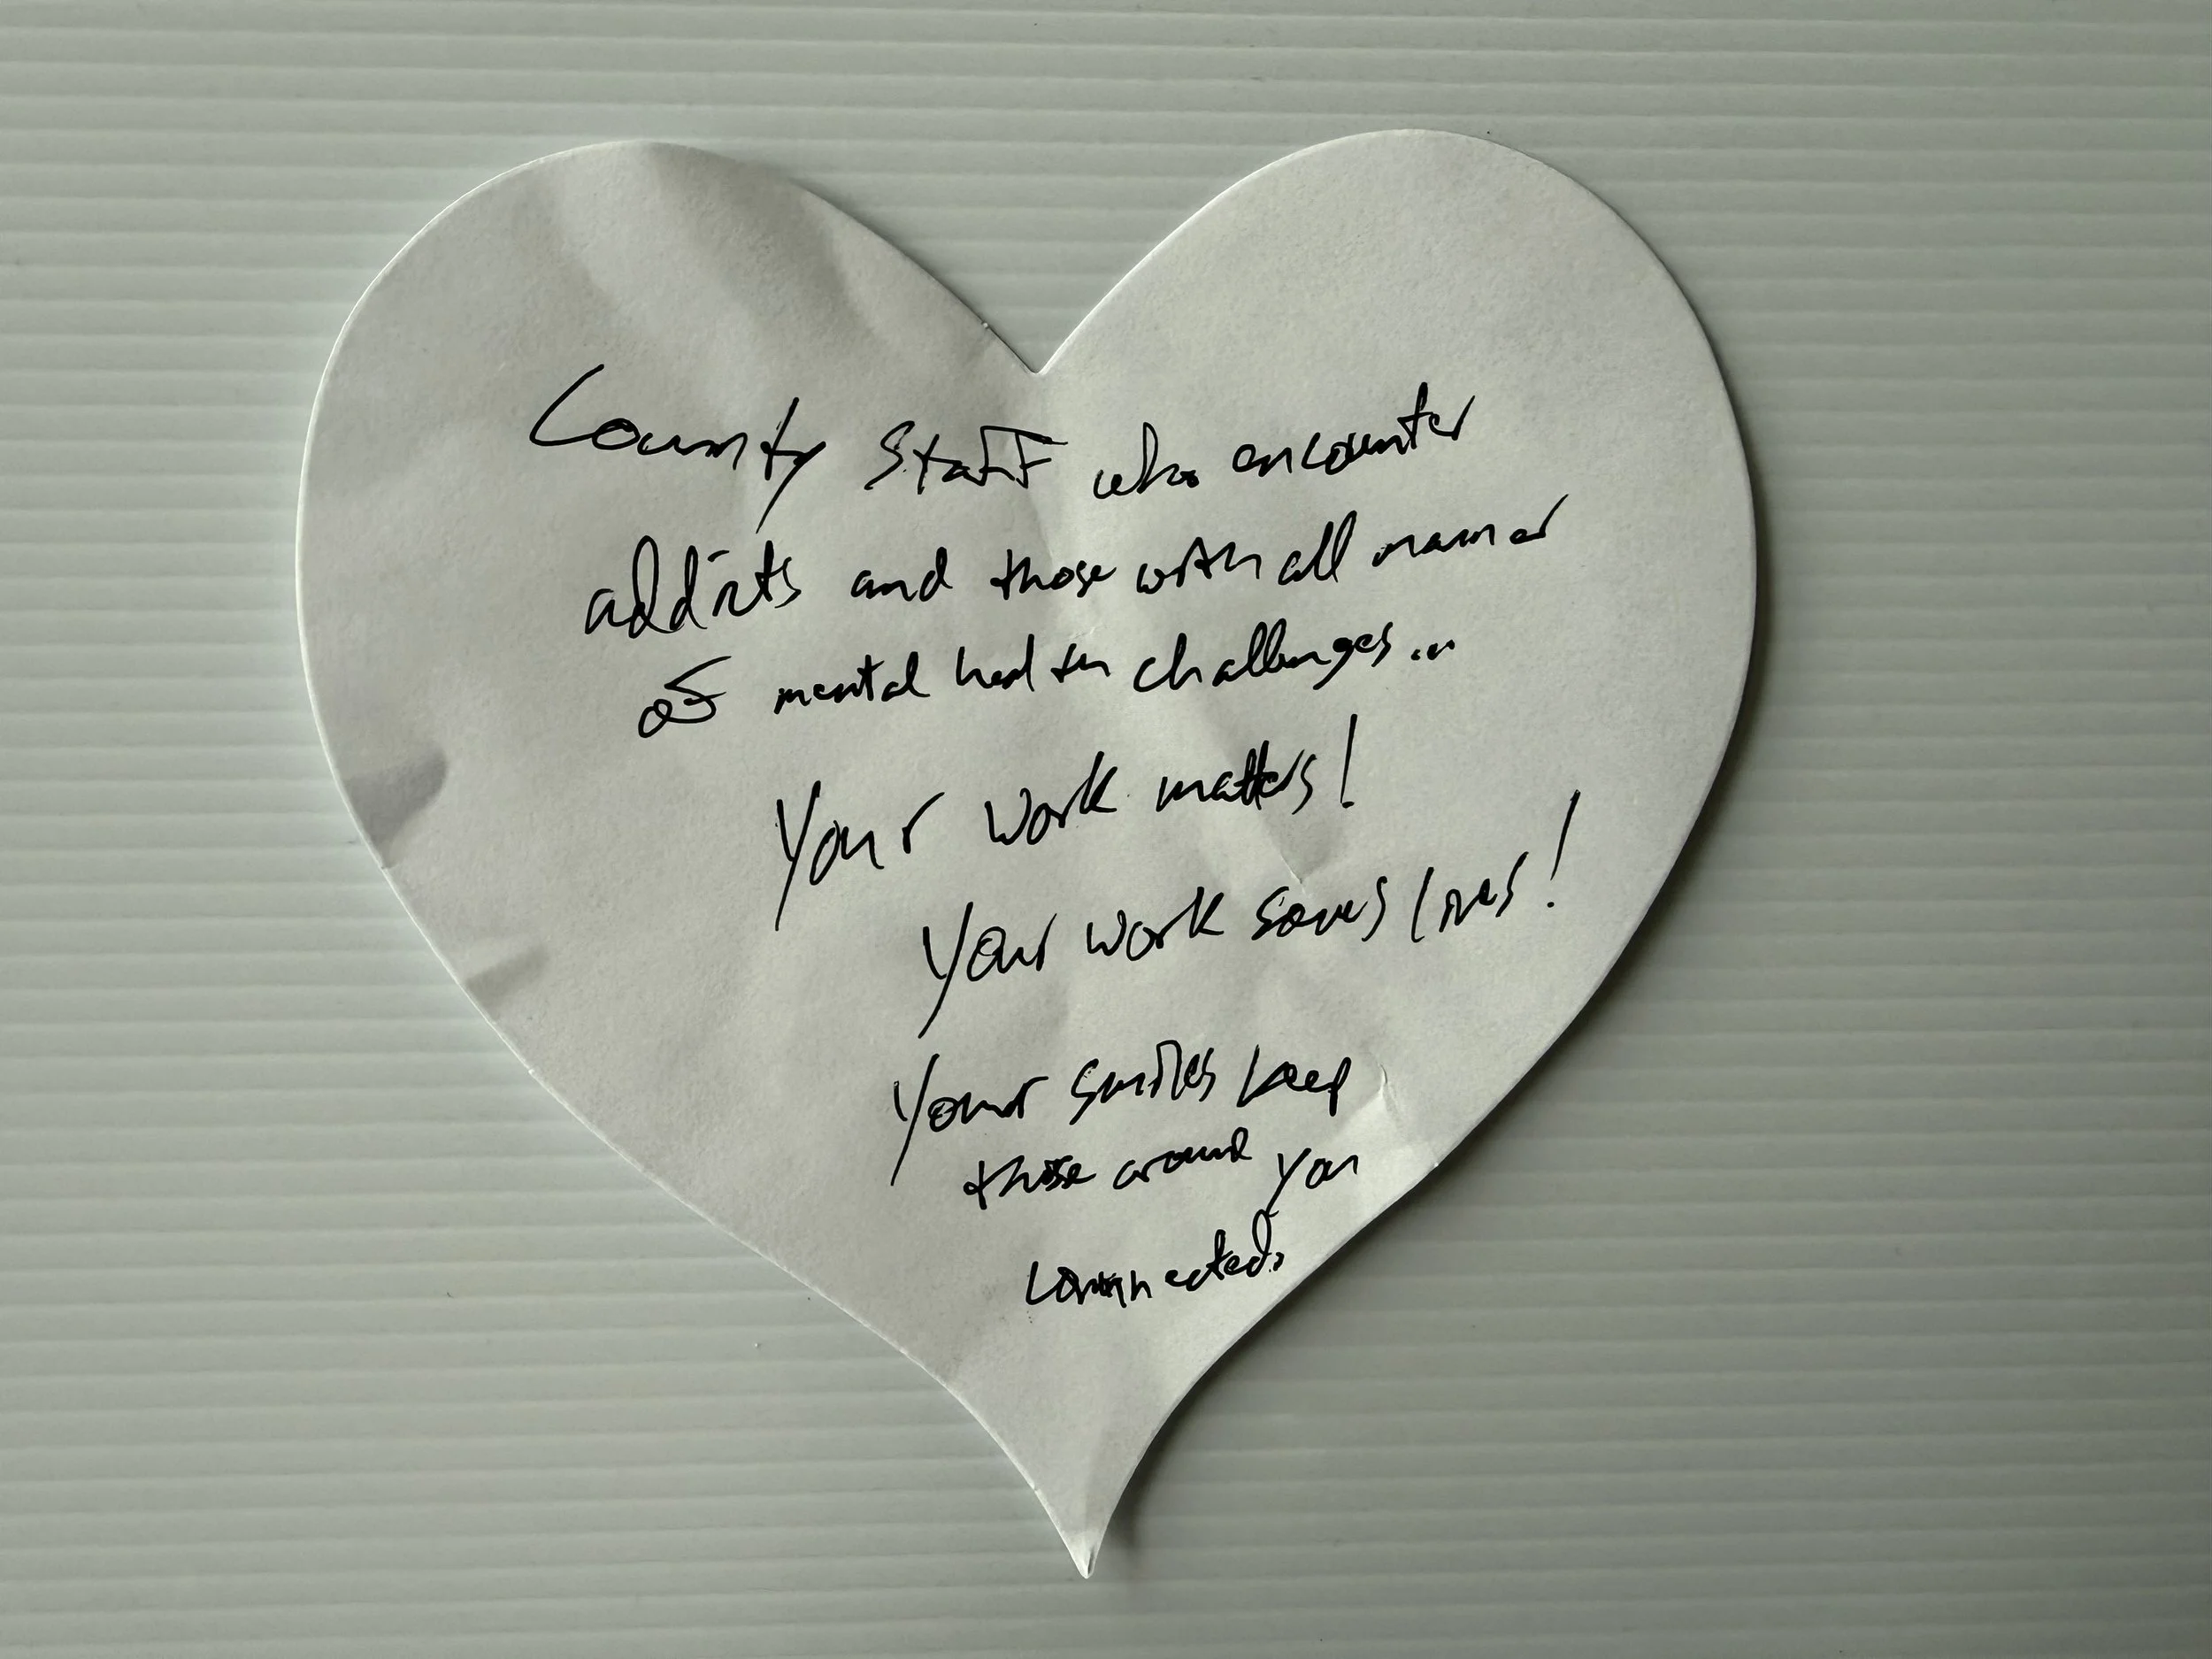 County Staff who encounter
addicts and those with all manner
of mental health challenges...
Your work matters!
Your work saves lives!
Your smiles keep
those around you
connected.